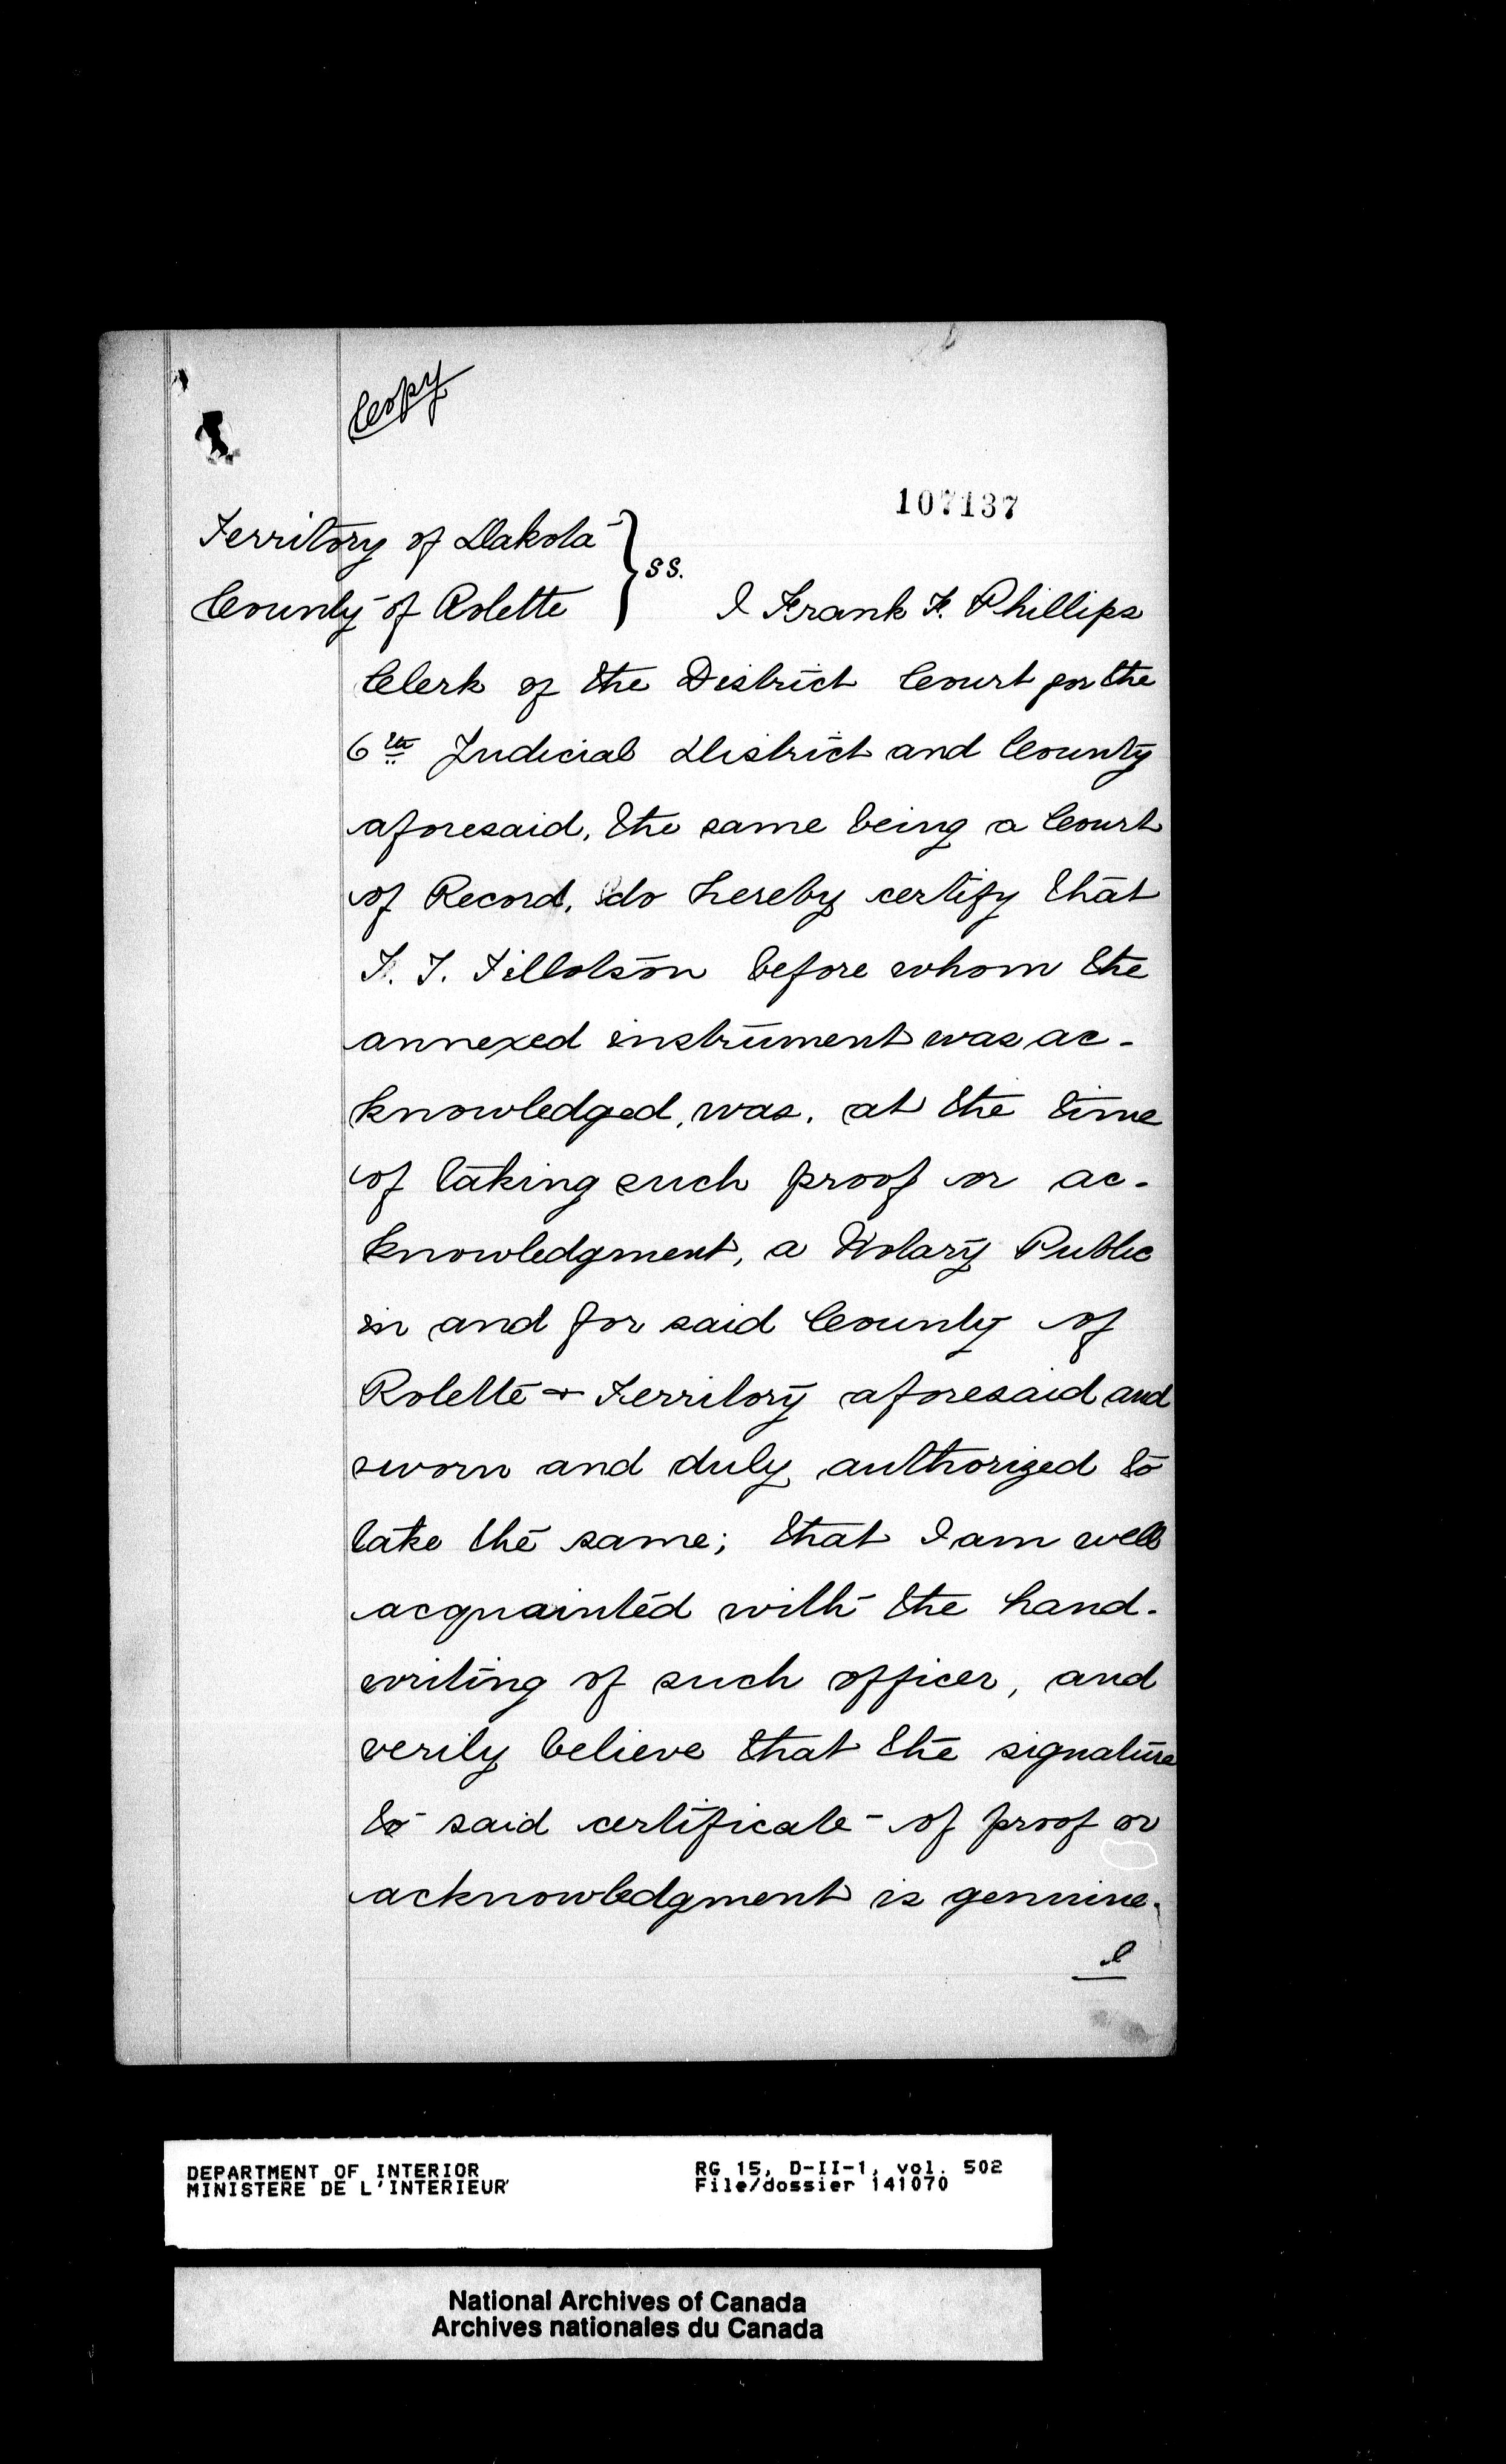 Copy
107137
Territory of Dakota
County of Rolette } ss. I Frank F. Phillips
Clerk of the District Court for the
6th Judicial District and County
aforesaid, the same being a Court
of Record, do hereby certify that
F. T. Tillotson before whom the
annexed instrument was ac-
knowledged, was, at the time
of taking such proof or ac-
knowledgment, a Notary Public
in and for said County of
Rolette & Territory aforesaid and
sworn and duly authorized to
take the same; that I am well
acquainted with the hand-
writing of such officer, and
verily believe that the signature
to said certificate of proof or
acknowledgment is genuine.
I
DEPARTMENT OF INTERIOR
MINISTERE DE L'INTERIEUR
RG 15, D-II-1, vol. 502
File/dossier 141070
National Archives of Canada
Archives nationales du Canada